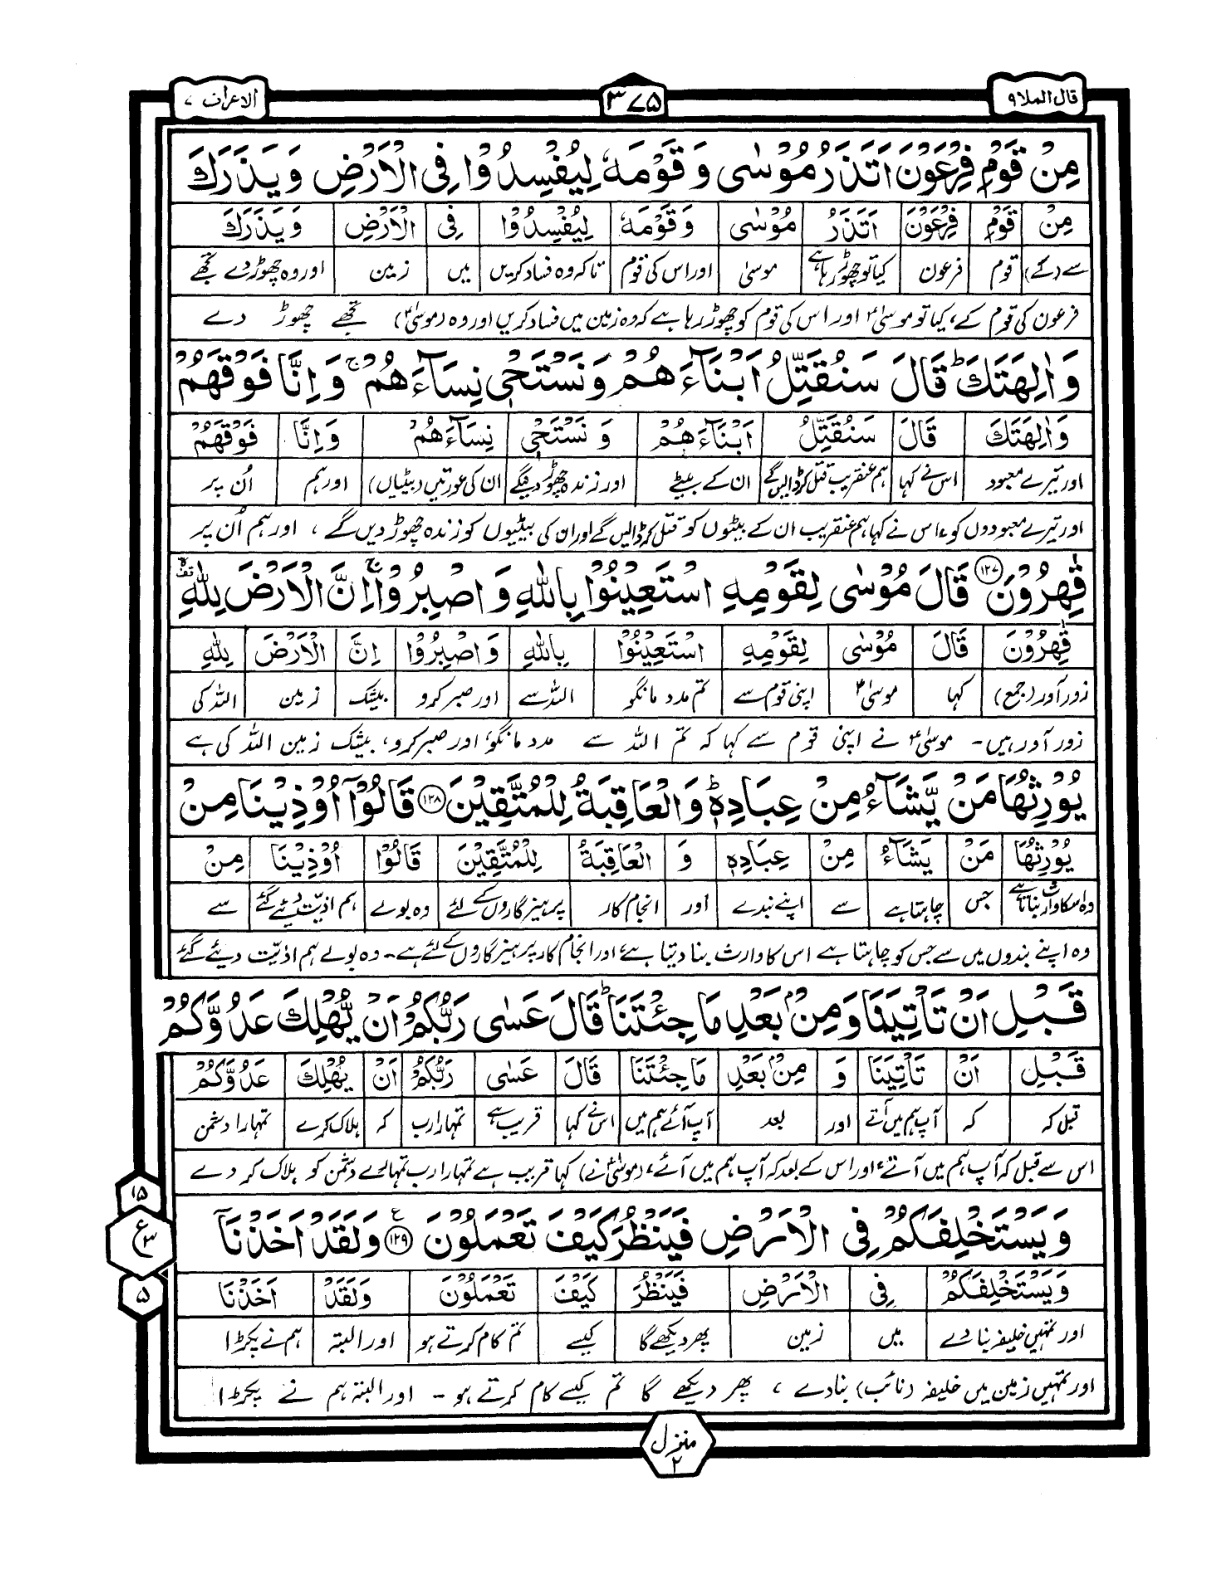 قال الملا ۹
۳۷۵
الاعراف ۷
مِنْ قَوْمِ فِرْعَوْنَ اَتَذَرُ مُوْسٰى وَ قَوْمَهٗ لِيُفْسِدُوْا فِى الْاَرْضِ وَ يَذَرَكَ
مِنْ قَوْمِ فِرْعَوْنَ اَتَذَرُ مُوْسٰى وَ قَوْمَهٗ لِيُفْسِدُوْا فِى الْاَرْضِ وَ يَذَرَكَ
سے (کے) قوم فرعون کیا تو چھوڑ رہا ہے موسیٰ اور اس کی قوم تاکہ وہ فساد کریں میں زمین اور وہ چھوڑ دے تجھے
فرعون کی قوم کے، کیا تو موسیٰؑ اور اس کی قوم کو چھوڑ رہا ہے کہ وہ زمین میں فساد کریں اور وہ (موسیٰؑ) تجھے چھوڑ دے
وَاٰلِهَتَكَ ؕ قَالَ سَنُقَتِّلُ اَبْنَآءَهُمْ وَنَسْتَحْىٖ نِسَآءَهُمْ ۚ وَاِنَّا فَوْقَهُمْ
وَاٰلِهَتَكَ قَالَ سَنُقَتِّلُ اَبْنَآءَهُمْ وَ نَسْتَحْىٖ نِسَآءَهُمْ وَاِنَّا فَوْقَهُمْ
اور تیرے معبود اس نے کہا ہم عنقریب قتل کر ڈالیں گے ان کے بیٹے اور زندہ چھوڑ دینگے ان کی عورتیں (بیٹیاں) اور ہم اُن پر
اور تیرے معبودوں کو، اس نے کہا ہم عنقریب ان کے بیٹوں کو قتل کر ڈالیں گے اور ان کی بیٹیوں کو زندہ چھوڑ دیں گے، اور ہم اُن پر
قٰهِرُوْنَ ۱۲۷ قَالَ مُوْسٰى لِقَوْمِهِ اسْتَعِيْنُوْا بِاللّٰهِ وَ اصْبِرُوْا ۚ اِنَّ الْاَرْضَ لِلّٰهِ
قٰهِرُوْنَ قَالَ مُوْسٰى لِقَوْمِهِ اسْتَعِيْنُوْا بِاللّٰهِ وَ اصْبِرُوْا اِنَّ الْاَرْضَ لِلّٰهِ
زور آور (جمع) کہا موسیٰؑ اپنی قوم سے تم مدد مانگو اللہ سے اور صبر کرو بیشک زمین اللہ کی
زور آور ہیں۔ موسیٰؑ نے اپنی قوم سے کہا کہ تم اللہ سے مدد مانگو، اور صبر کرو، بیشک زمین اللہ کی ہے
يُوْرِثُهَا مَنْ يَّشَآءُ مِنْ عِبَادِهٖ ؕ وَالْعَاقِبَةُ لِلْمُتَّقِيْنَ ۱۲۸ قَالُوْٓا اُوْذِيْنَا مِنْ
يُوْرِثُهَا مَنْ يَشَآءُ مِنْ عِبَادِهٖ وَ الْعَاقِبَةُ لِلْمُتَّقِيْنَ قَالُوْا اُوْذِيْنَا مِنْ
وہ اسکا وارث بناتا ہے جس چاہتا ہے سے اپنے بندے اور انجام کار پرہیزگاروں کے لئے وہ بولے ہم اذیت دیئے گئے سے
وہ اپنے بندوں میں سے جس کو چاہتا ہے اس کا وارث بنا دیتا ہے، اور انجام کار پرہیزگاروں کے لئے ہے۔ وہ بولے ہم اذیت دیئے گئے
قَبْلِ اَنْ تَاْتِيَنَا وَمِنْۢ بَعْدِ مَا جِئْتَنَا ؕ قَالَ عَسٰى رَبُّكُمْ اَنْ يُّهْلِكَ عَدُوَّكُمْ
قَبْلِ اَنْ تَاْتِيَنَا وَ مِنْۢ بَعْدِ مَا جِئْتَنَا قَالَ عَسٰى رَبُّكُمْ اَنْ يُّهْلِكَ عَدُوَّكُمْ
قبل کہ کہ آپ ہم میں آتے اور بعد آپ آئے ہم میں اس نے کہا قریب ہے تمہارا رب کہ ہلاک کرے تمہارا دشمن
اس سے قبل کہ آپ ہم میں آتے، اور اس کے بعد کہ آپ ہم میں آئے، (موسیٰؑ نے) کہا قریب ہے تمہارا رب تمہارے دشمن کو ہلاک کر دے
وَيَسْتَخْلِفَكُمْ فِى الْاَرْضِ فَيَنْظُرَ كَيْفَ تَعْمَلُوْنَ ۱۲۹ ع وَلَقَدْ اَخَذْنَآ
وَيَسْتَخْلِفَكُمْ فِى الْاَرْضِ فَيَنْظُرَ كَيْفَ تَعْمَلُوْنَ وَلَقَدْ اَخَذْنَا
اور تمہیں خلیفہ بنا دے میں زمین پھر دیکھے گا کیسے تم کام کرتے ہو اور البتہ ہم نے پکڑا
اور تمہیں زمین میں خلیفہ (نائب) بنا دے، پھر دیکھے گا تم کیسے کام کرتے ہو۔ اور البتہ ہم نے پکڑا
۱۵
ع ۳
۵
منزل ۲